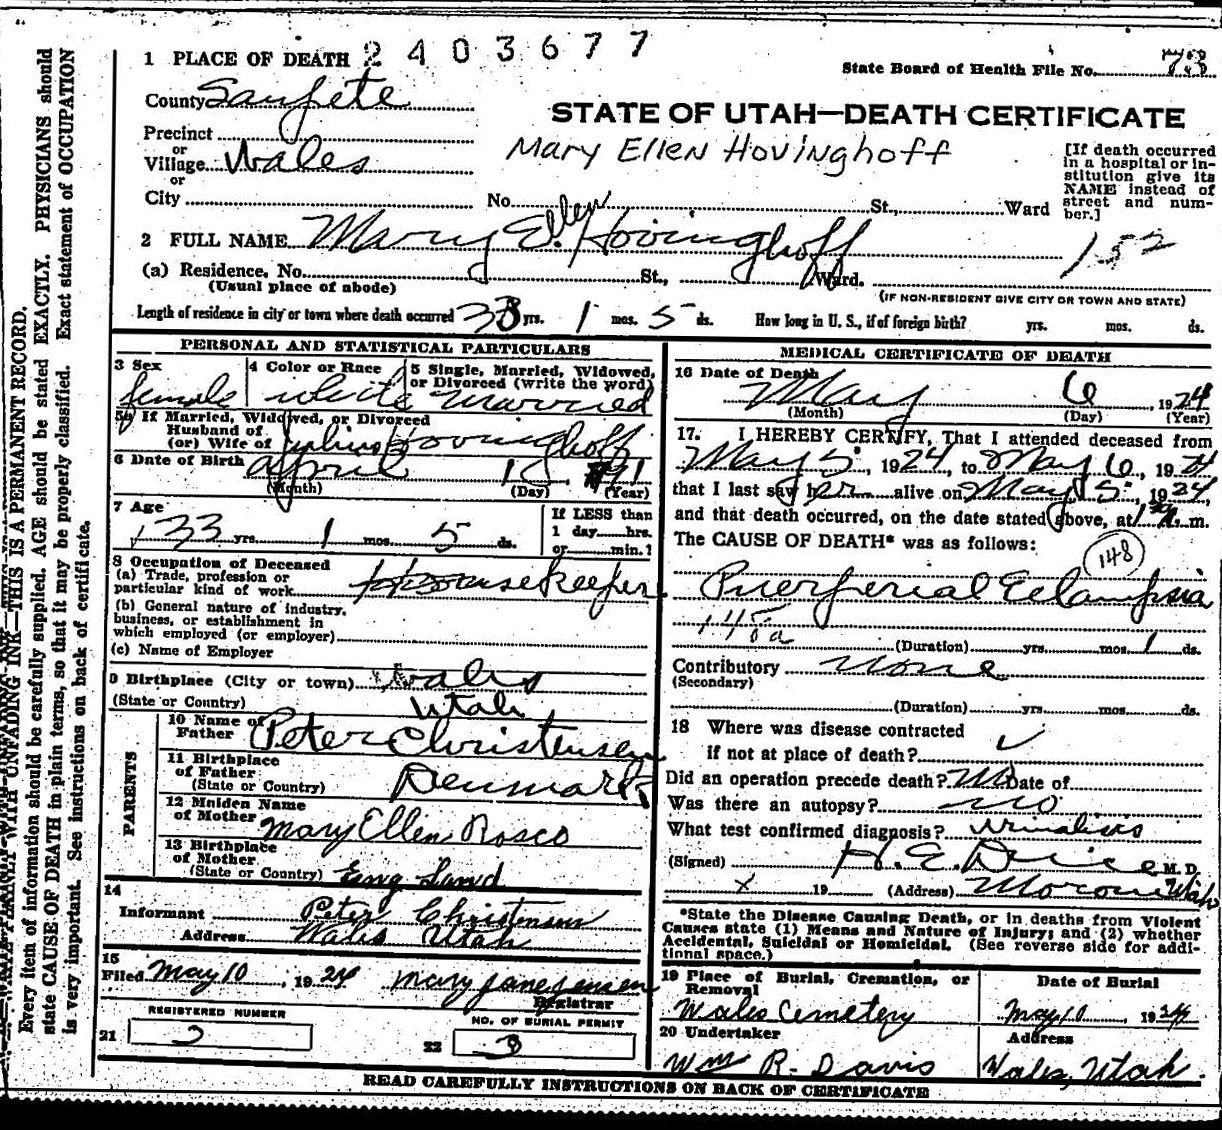 2403677
1 PLACE OF DEATH
State Board of Health File No. 73
County Sanpete
STATE OF UTAH—DEATH CERTIFICATE
Precinct
Mary Ellen Hovinghoff
or
Village Wales
or
City
No. St., Ward
[If death occurred
in a hospital or in-
stitution give its
NAME instead of
street and num-
ber.]
2 FULL NAME Mary Ellen Hovinghoff
152
(a) Residence, No. St., Ward.
(Usual place of abode)
(IF NON-RESIDENT GIVE CITY OR TOWN AND STATE)
Length of residence in city or town where death occurred 33 yrs. 1 mos. 5 ds. How long in U. S., if of foreign birth? yrs. mos. ds.
PERSONAL AND STATISTICAL PARTICULARS
3 Sex
female
4 Color or Race
white
5 Single, Married, Widowed,
or Divorced (write the word)
married
5a If Married, Widowed, or Divorced
Husband of
(or) Wife of Julius Hovinghoff
6 Date of Birth April 1
(Month) (Day) (Year)
7 Age
33 yrs. 1 mos. 5 ds.
If LESS than
1 day hrs.
or min.?
8 Occupation of Deceased
(a) Trade, profession or
particular kind of work Housekeeper
(b) General nature of industry,
business, or establishment in
which employed (or employer)
(c) Name of Employer
9 Birthplace (City or town) Wales
(State or Country) Utah
PARENTS
10 Name of
Father Peter Christensen
11 Birthplace
of Father
(State or Country) Denmark
12 Maiden Name
of Mother Mary Ellen Rosco
13 Birthplace
of Mother
(State or Country) Eng Land
14
Informant Peter Christensen
Address Wales Utah
15
Filed May 10, 1924 Mary Jane Jensen
Registrar
REGISTERED NUMBER
21 3
NO. OF BURIAL PERMIT
22 3
MEDICAL CERTIFICATE OF DEATH
16 Date of Death
May 6, 1924
(Month) (Day) (Year)
17. I HEREBY CERTIFY, That I attended deceased from
May 5, 1924, to May 6, 1924
that I last saw her alive on May 5, 1924,
and that death occurred, on the date stated above, at m.
The CAUSE OF DEATH* was as follows:
148
Puerperial Eclampsia
148a
(Duration) yrs. mos. 1 ds.
Contributory none
(Secondary)
(Duration) yrs. mos. ds.
18 Where was disease contracted
if not at place of death? ✓
Did an operation precede death? No Date of
Was there an autopsy? no
What test confirmed diagnosis? urinalisis
(Signed) M. D.
x 19 (Address) Moroni Utah
*State the Disease Causing Death, or in deaths from Violent
Causes state (1) Means and Nature of Injury; and (2) whether
Accidental, Suicidal or Homicidal. (See reverse side for addi-
tional space.)
19 Place of Burial, Cremation, or
Removal
Wales Cemetery
Date of Burial
May 10 1924
20 Undertaker
Wm R. Davis
Address
Wales, Utah.
READ CAREFULLY INSTRUCTIONS ON BACK OF CERTIFICATE
THIS IS A PERMANENT RECORD.
Every item of information should be carefully supplied. AGE should be stated EXACTLY. PHYSICIANS should
state CAUSE OF DEATH in plain terms, so that it may be properly classified. Exact statement of OCCUPATION
is very important. See instructions on back of certificate.